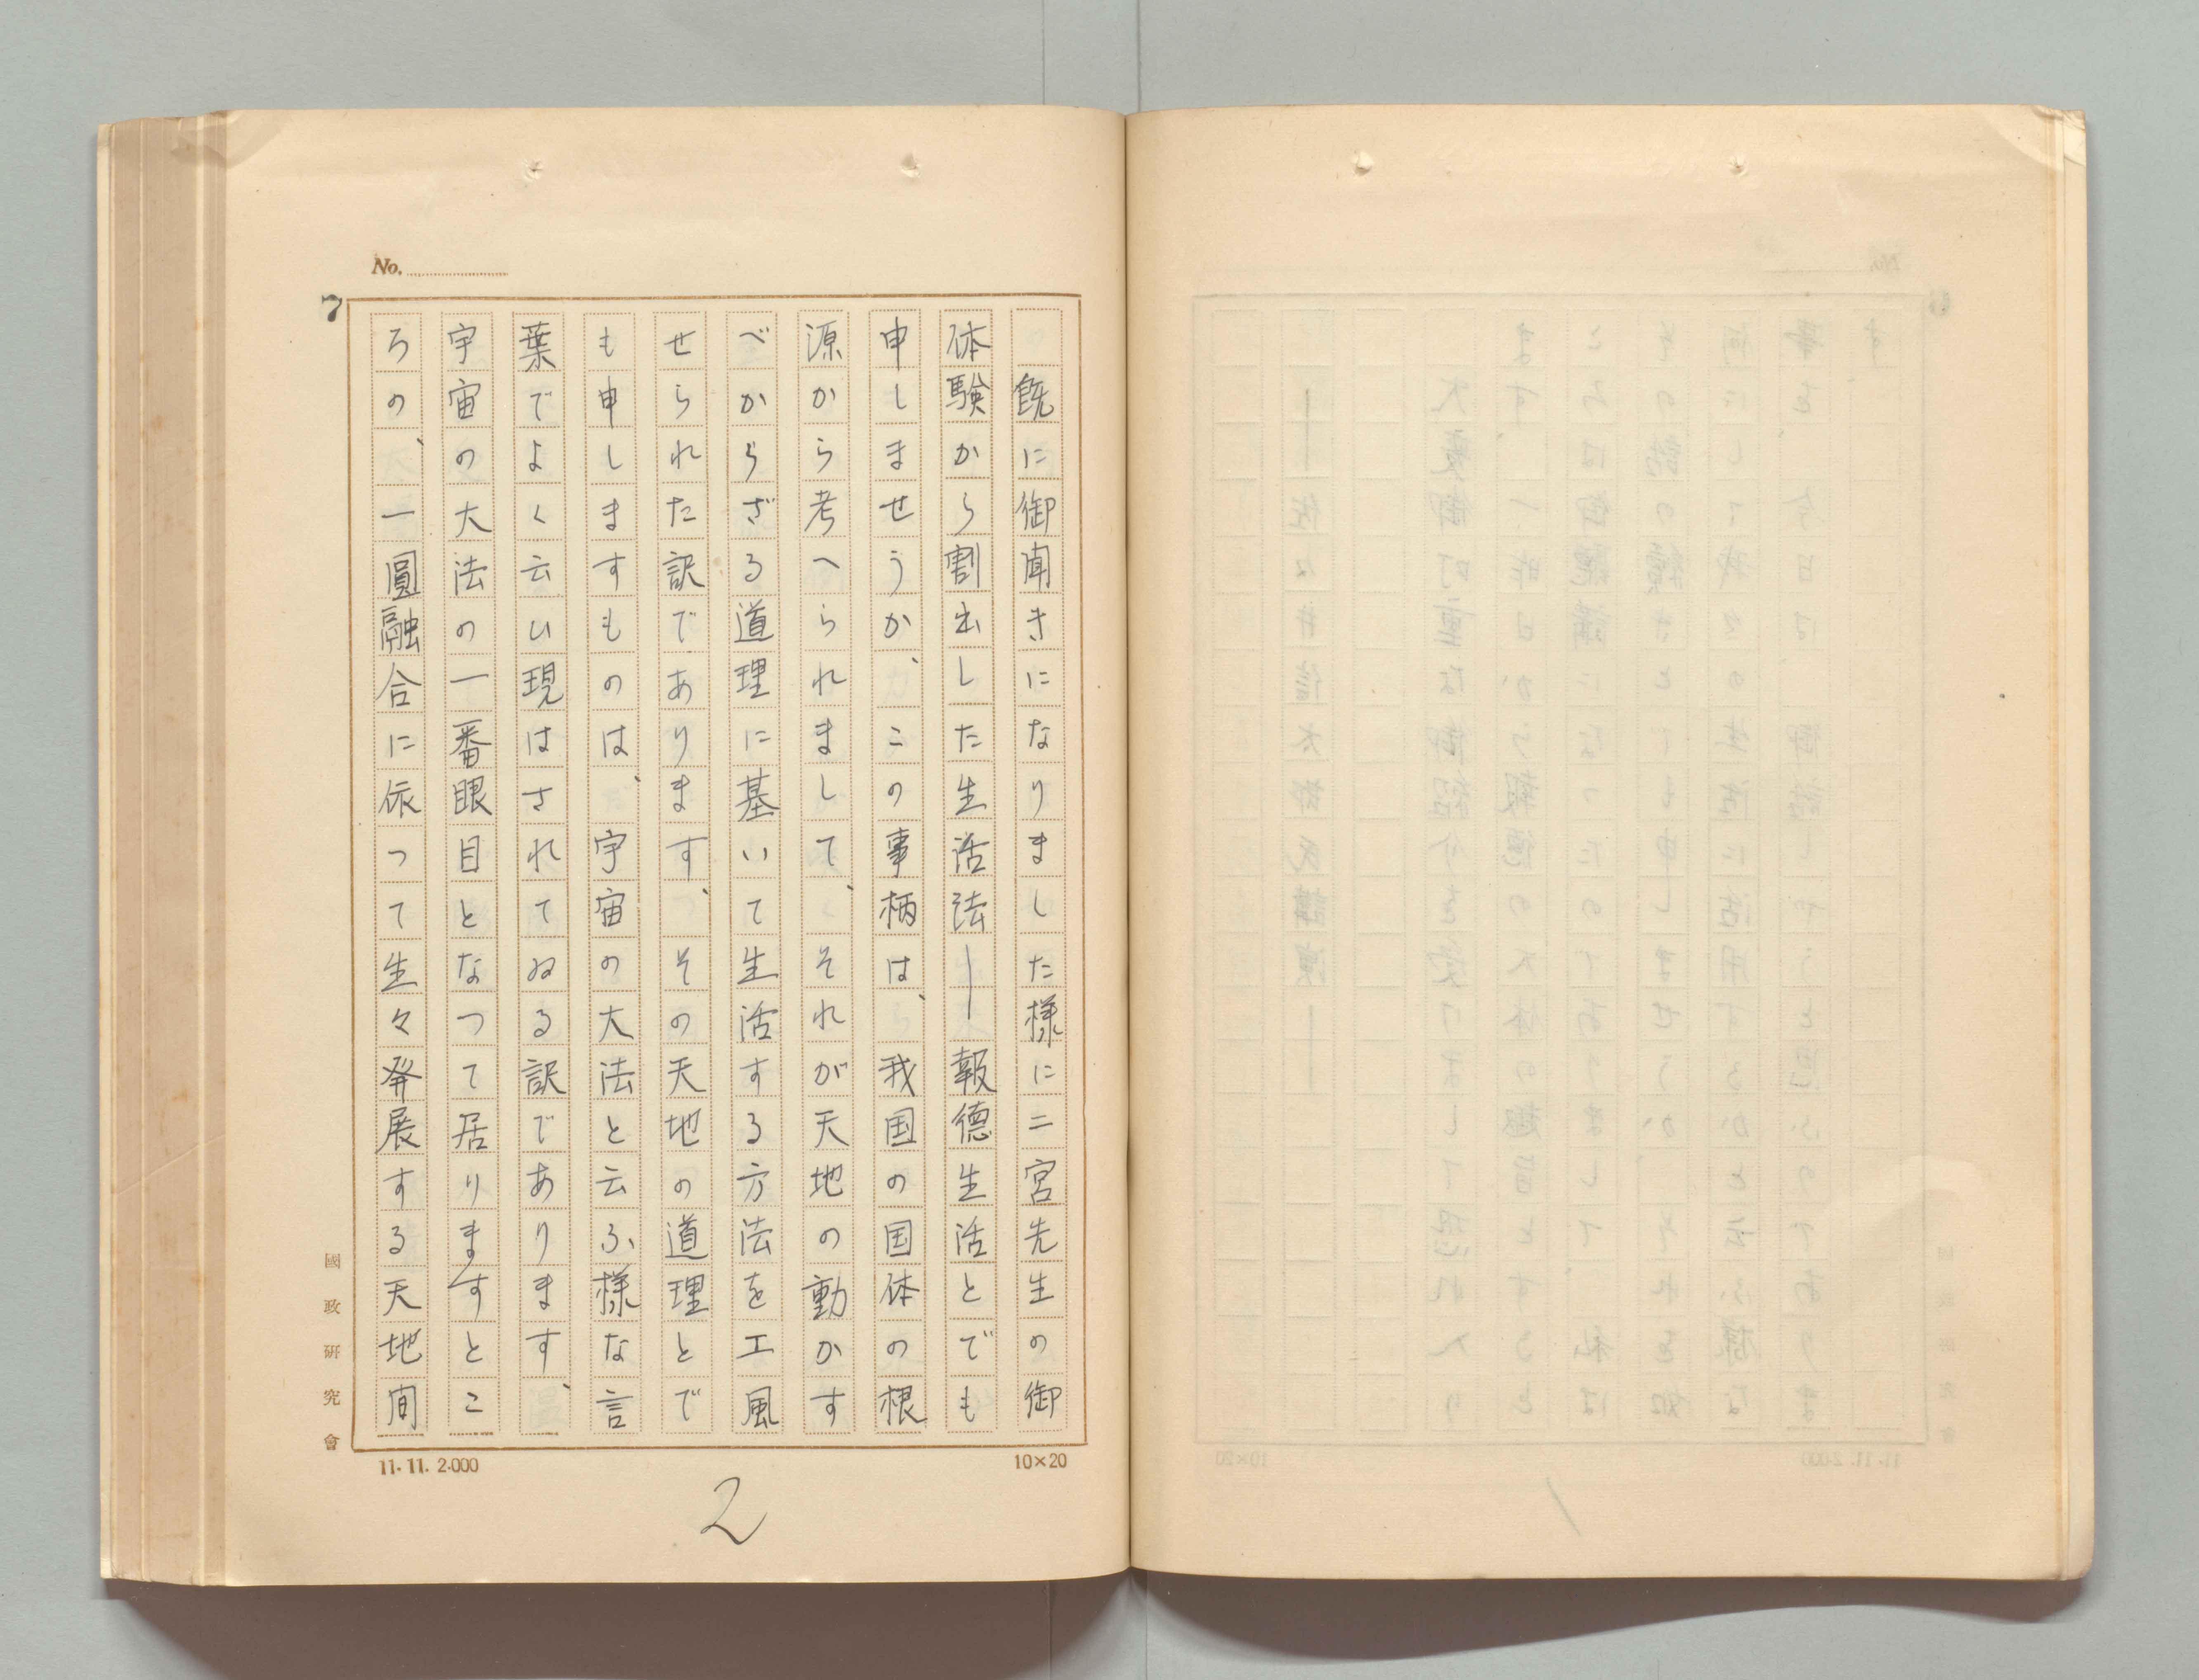 No.
7
既に御聞きになりました様に二宮先生の御
体験から割出した生活法―報徳生活とでも
申しませうか、この事柄は、我国の国体の根
源から考へられまして、それが天地の動かす
べからざる道理に基いて生活する方法を工風
せられた訳であります、その天地の道理とで
も申しますものは、宇宙の大法と云ふ様な言
葉でよく云ひ現はされてゐる訳であります、
宇宙の大法の一番眼目となつて居りますとこ
ろの、一圓融合に依つて生々発展する天地間
國政研究會
11.11. 2.000
10×20
2